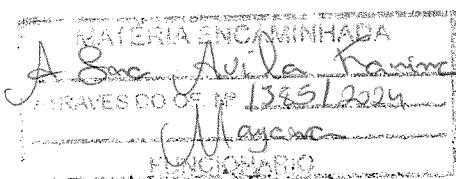 MATÉRIA ENCAMINHADA
A Avila
ATRAVES DO OF. Nº 1385/2024
Mayara
FUNCIONARIO